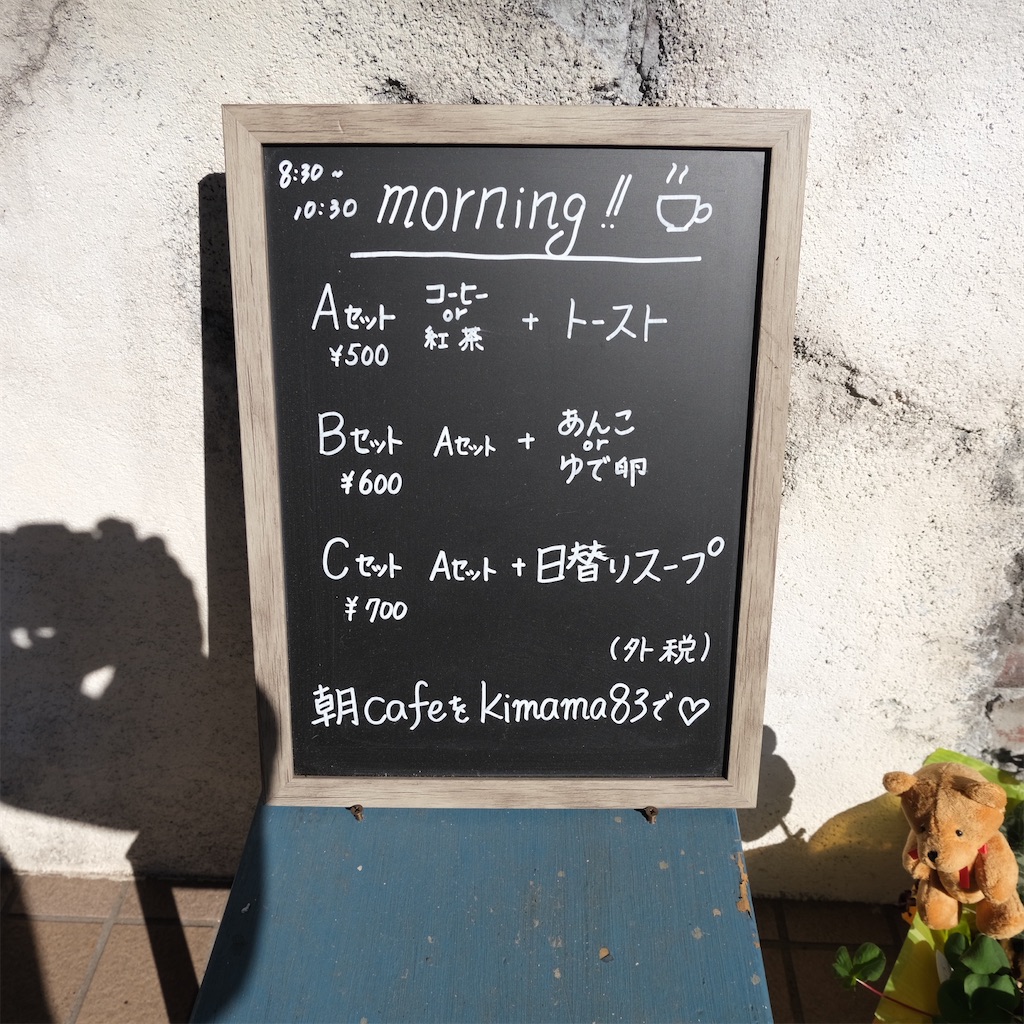 8:30~
10:30
morning!!
Aセット コーヒー or 紅茶 + トースト
¥500
Bセット Aセット + あんこ or ゆで卵
¥600
Cセット Aセット + 日替りスープ
¥700
(外税)
朝cafeをkimama83で♡